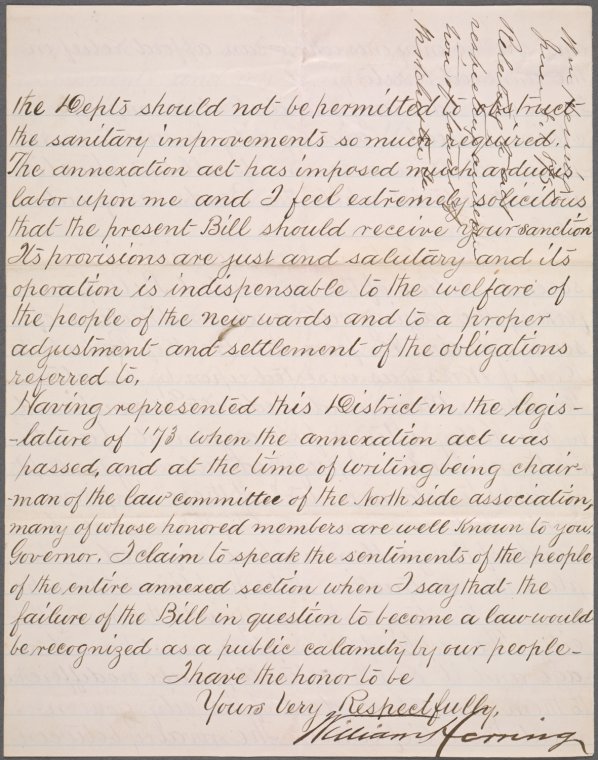 Wm Herring
June
Relative to
the Depts should not be permitted to obstruct
the sanitary improvements so much required.
The annexation act has imposed much arduous
labor upon me and I feel extremely solicitous
that the present Bill should receive your sanction
Its provisions are just and salutary and its
operation is indispensable to the welfare of
the people of the new wards and to a proper
adjustment and settlement of the obligations
referred to.
Having represented this District in the legis-
-lature of '73 when the annexation act was
passed, and at the time of writing being chair-
-man of the law committee of the North side association,
many of whose honored members are well Known to you,
Governor. I claim to speak the sentiments of the people
of the entire annexed section when I say that the
failure of the Bill in question to become a law would
be recognized as a public calamity by our people-
I have the honor to be
Yours Very Respectfully,
William Herring